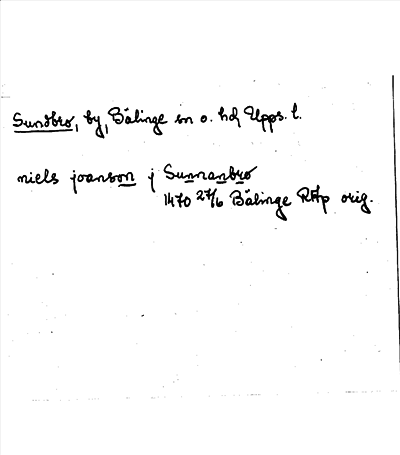 Sundbro, by, Bälinge sn o. hd Upps. l.
niels joanson j Sunnanbro
1470 27/6 Bälinge RAp orig.